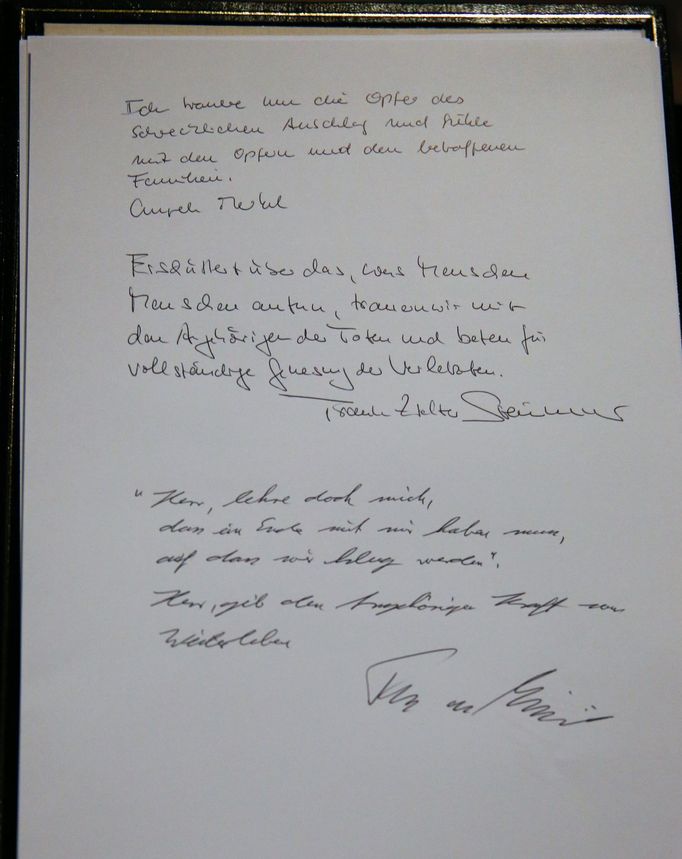 Ich trauere um die Opfer des
schrecklichen Anschlag und fühle
mit den Opfern und den betroffenen
Familien.
Angela Merkel
Erschüttert über das, was Menschen
Menschen antun, trauern wir mit
den Angehörigen der Toten und beten für
vollständige Genesung der Verletzten.
Frank-Walter Steinmeier
"Herr, lehre doch mich,
dass ein Ende mit mir haben muss,
auf dass wir klug werden".
Herr, gib den Angehörigen Kraft zum
Weiterleben